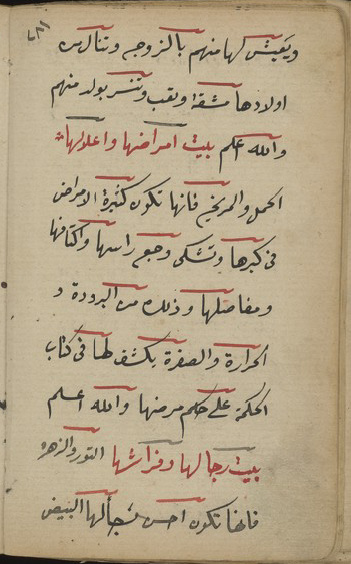 ويعيش كها منهم بالزوجه وتنال من
اولادها مشقة وتعب وتنسر بولد منهم
والله اعلم بيت امراضها واعلالها
الحمل والمريخ فانها تكون كثيرة الامراض
فى كبرها وتشكى وجع راسها واكتافها
ومفاصلها وذلك من البرودة و
الحرارة والصفرة يكشف لها فى كتاب
الحكمة على حكم مرضها والله اعلم
بيت رجالها وفراشها الثور والزهره
فانها تكون احسن البيض